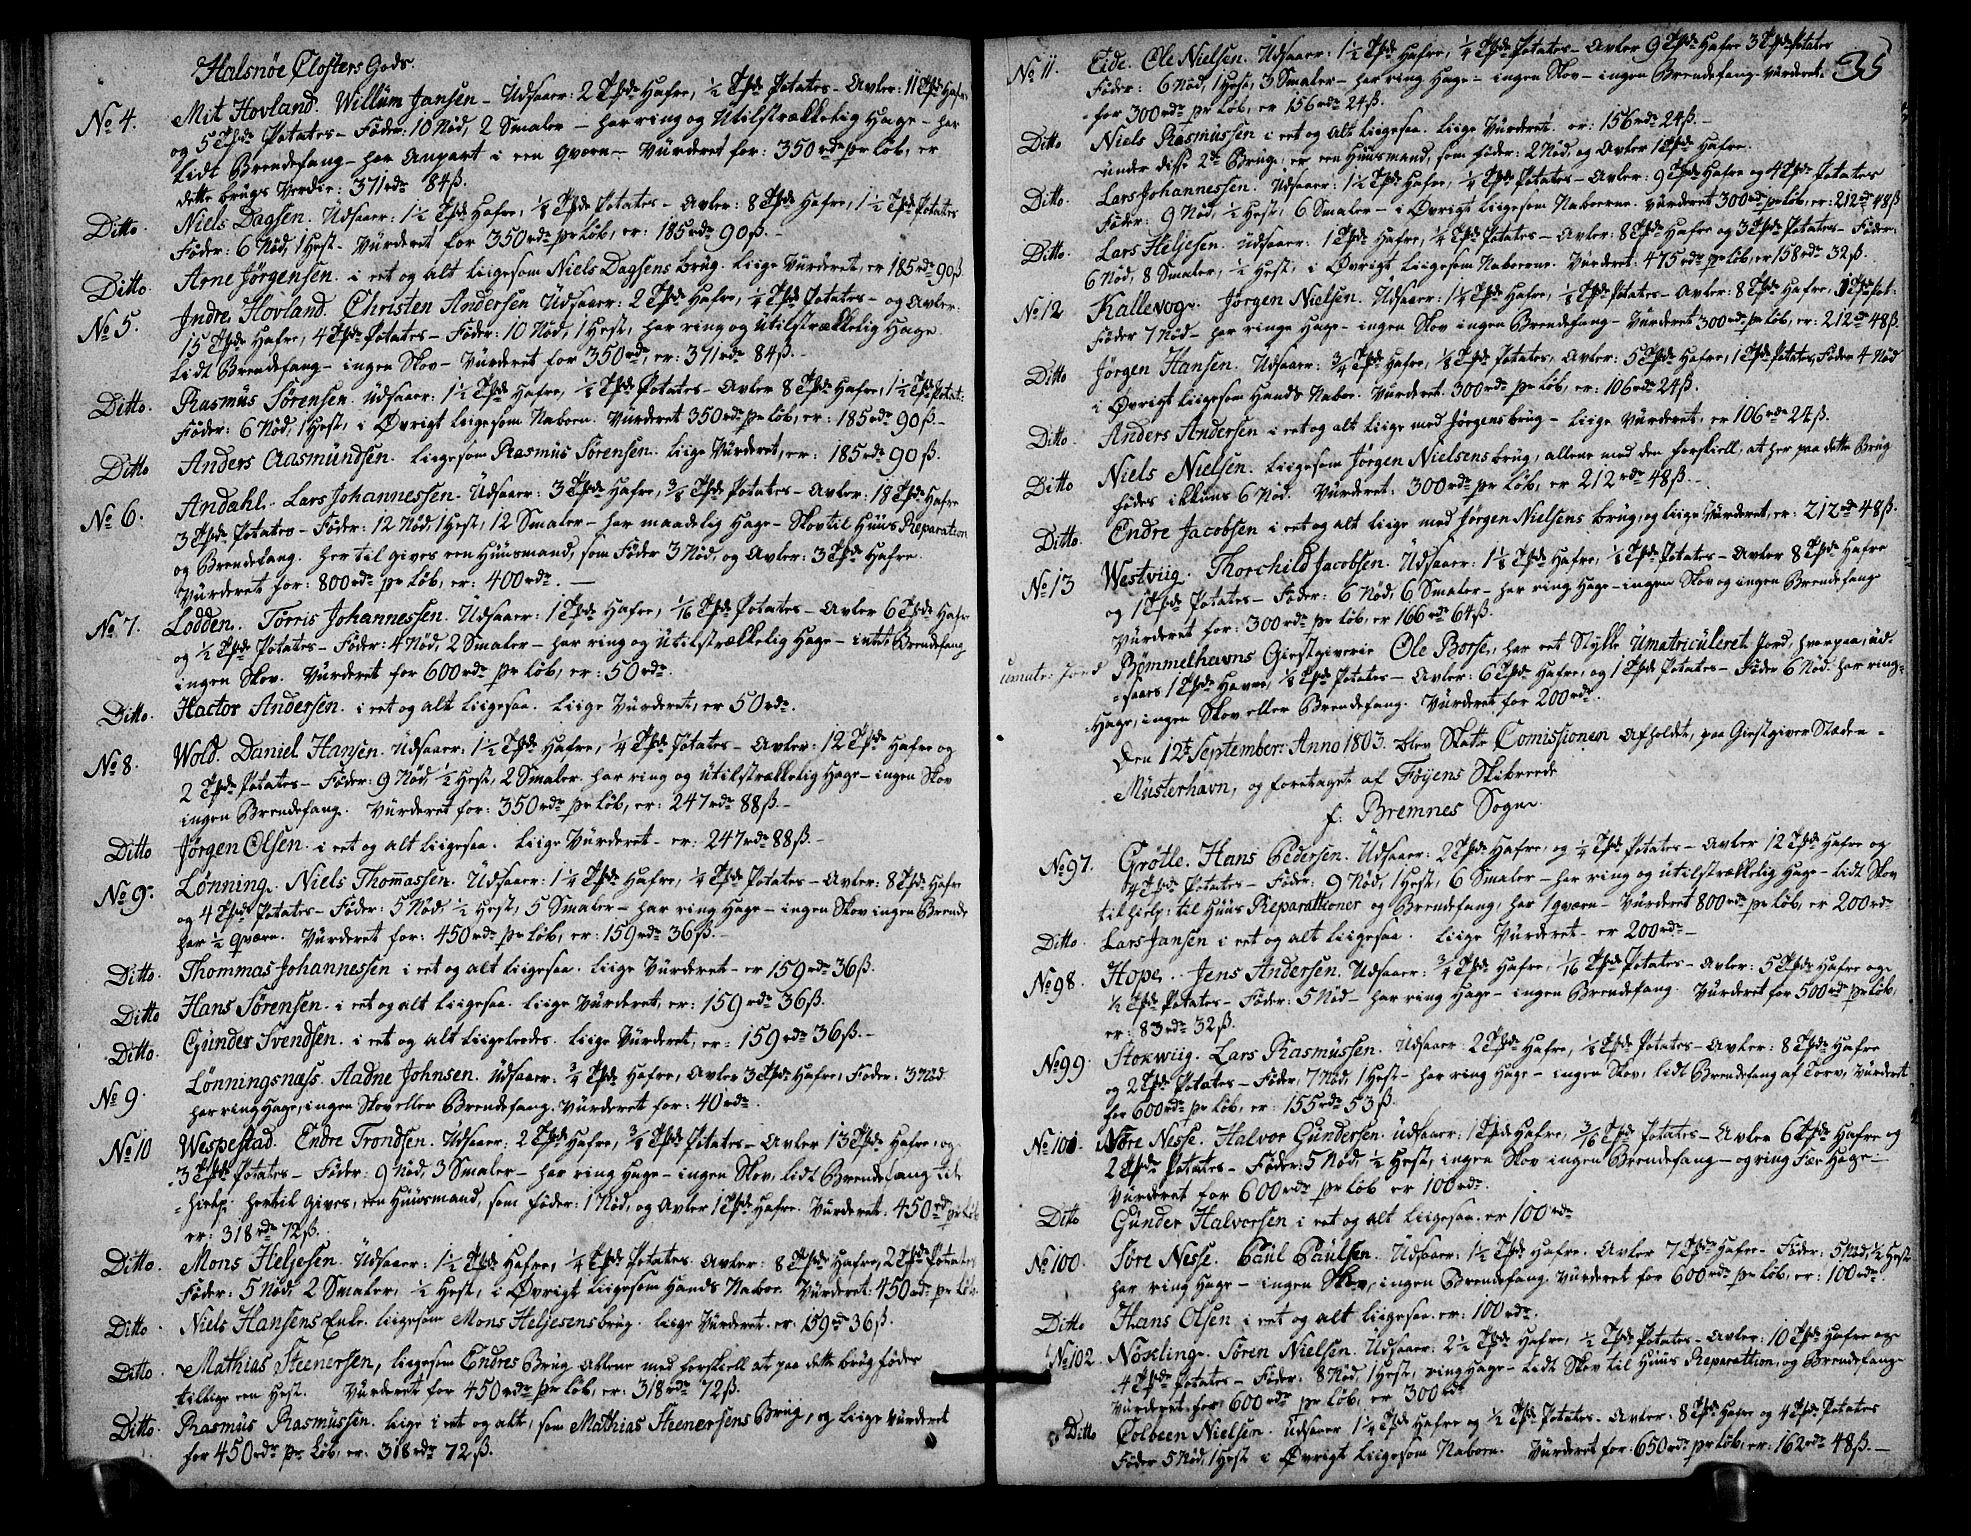 Halsnøe Closters Gods.
No 4. Mit Hovland. Willum Jansen - Udsaaer: 2 Tdr Hafre, ½ Tde Potates - Avler: 11 Tdr Hafre
og 5 Tdr Potates - Føder: 10 Nød, 2 Smaler - har ring og Utilstrækkelig Hage - har
lidt Brendefang - har Anpart i een Qværn - Vürderet for: 350 rdr pr Løb, er
dette brugs Verdie: 371 rdr 84 ß.
Ditto. Niels Dagsen. Udsaaer: 1½ Tdr Hafre, ⅛ Tde Potates - Avler: 8 Tdr Hafre, 1½ Tde Potates
Føder: 6 Nød, 1 Hest - Vürderet for 350 rdr pr Løb, er: 185 rdr 90 ß. -
Ditto. Arne Jørgensen. i eet og alt liigesom Niels Dagsens brüg. liige Vürderet, er 185 rdr 90 ß.
No 5. Indre Hovland. Christen Andersen Udsaaer: 2 Tdr Hafre, ¼ Tde Potates - og Avler:
15 Tdr Hafre, 4 Tdr Potates - Føder: 10 Nød, 1 Hest, har ring og Utilstrækkelig Hage
lidt Brendefang - ingen Skov - Vürderet for 350 rdr, er: 371 rdr 84 ß. -
Ditto. Rasmus Sørensen. Udsaaer: 1½ Tdr Hafre, ⅛ Tde Potates - Avler 8 Tdr Hafre, 1½ Tde Potat:
Føder: 6 Nød, 1 Hest, i Øvrigt liigesom Naboen. Vürderet 350 rdr pr Løb, er: 185 rdr 90 ß. -
Ditto Anders Aasmundsen. liigesom Rasmus Sørensen. liige Vürderet, er: 185 rdr 90 ß.
No 6. Andahl. Lars Johannessen. Udsaaer: 3 Tdr Hafre, ⅜ Tde Potates - Avler: 18 Tdr Hafre
3 Tdr Potates - Føder: 12 Nød, 1 Hest, 12 Smaler - har maadelig Hage - Skov til Hüüs Reparation
og Brendefang. her til gives een Hüüsmand, som Føder 3 Nød, og Avler: 3 Tdr Hafre.
Vürderet for: 800 rdr pr Løb, er: 400 rdr. -
No 7. Lodden. Torris Johannessen. Udsaaer: 1 Tde Hafre, 1/16 Tde Potates - Avler 6 Tdr Hafre
og ½ Tde Potates - Føder: 4 Nød, 2 Smaler - har ring og Utilstrækkelig Hage - intet Brendefang
ingen Skov. Vürderet for 600 rdr pr Løb, er: 50 rdr.
Ditto. Hactor Andersen. i eet og alt liigesaa. liige Vürderet, er 50 rdr.
No 8. Wold. Daniel Hansen. Udsaaer: 1½ Tdr Hafre, ¼ Tde Potates - Avler: 12 Tdr Hafre og
2 Tdr Potates - Føder: 9 Nød, ½ Hest, 2 Smaler. har ring og Utilstrækkelig Hage - ingen Skov
ingen Brendefang. Vürderet for: 350 rdr pr Løb, er: 247 rdr 88 ß. -
Ditto Jørgen Olsen. i eet og alt liigesaa. liige Vürderet - er: 247 rdr 88 ß. -
No 9. Lønning. Niels Thomassen. Udsaaer: 1¼ Tdr Hafre, ¼ Tde Potates - Avler: 8 Tdr Hafre
og 4 Tdr Potates - Føder: 5 Nød, ½ Hest, 5 Smaler - har ring Hage - ingen Skov ingen Brende
har ½ Qværn. Vürderet for: 450 rdr pr Løb, er: 159 rdr 36 ß. -
Ditto. Thommas Johannessen i eet og alt liigesaa. liige Vürderet - er 159 rdr 36 ß.
Ditto Hans Sørensen. i eet og alt liigesaa. liige Vürderet, er: 159 rdr 36 ß.
Ditto. Gunder Svendsen. i eet og alt liigeleedes. liige Vürderet, er: 159 rdr 36 ß. -
No 9. Lønningsnæss. Aadne Johnsen. Udsaaer: ¾ Tde Hafre, Avler 3 Tdr Hafre, Føder: 3 Nød
har ring Hage, ingen Skov eller Brendefang. Vürderet for: 40 rdr.
No 10 Wespestad. Endre Trondsen. Udsaaer: 2 Tdr Hafre, ⅜ Tde Potates - Avler 13 Tdr Hafre og
3 Tdr Potates - Føder: 9 Nød, 3 Smaler - har ring Hage - ingen Skov, lidt Brendefang til
hielp. hertil gives, een Hüüsmand, som føder: 1 Nød, og Avler 1 Tde Hafre. Vürderet: 450 rdr pr Løb
er: 318 rdr 72 ß.
Ditto. Mons Heljesen. Udsaaer: 1½ Tdr Hafre, ¼ Tde Potates. Avler: 8 Tdr Hafre, 2 Tdr Potates
Føder: 5 Nød, 2 Smaler, ½ Hest, i Øvrigt liigesom Hands Nabo. Vürderet: 450 rdr pr Løb.
Ditto. Niels Hansens Enke. liigesom Mons Heljesens brüg. liige Vürderet. er: 159 rdr 36 ß.
Ditto. Mathias Steenersen, liigesom Endres Brüg. Allene med forskiell at paa dette brüg føder
tillige een Hest. Vürderet for 450 rdr pr Løb, er: 318 rdr 72 ß.
Ditto. Rasmus Rasmüssen. liige i eet og alt, som Mathias Steenersens Brüg, og liige Vürderet
for 450 rdr pr Løb, er: 318 rdr 72 ß.
35
No 11. Eide. Ole Nielsen. Udsaaer: 1½ Tdr Hafre, ¼ Tde Potates - Avler 9 Tdr Hafre 3 Tdr Potates
Føder: 6 Nød, 1 Hest, 3 Smaler - har ring Hage - ingen Skov - ingen Brendefang. Vürderet.
for 300 rdr pr Løb, er 156 rdr 24 ß.
Ditto Niels Rasmussen i eet og alt liigesaa. liige Vürderet. er: 156 rdr 24 ß. -
under disse 2de Brüg: er een Hüüsmand, som føder: 2 Nød, og Avler 1 Tde Hafre.
Ditto. Lars Johannessen. Udsaaer: 1½ Tdr Hafre, ¼ Tde Potates - Avler: 9 Tdr Hafre og 4 Tdr Potates
Føder: 9 Nød, ½ Hest, 6 Smaler - i Øvrigt liigesom Naboerne. Vürderet 300 rdr pr Løb, er: 212 rdr 48 ß
Ditto. Lars Heljesen. Udsaaer: 1 Tde Hafre, ¼ Tde Potates - Avler: 8 Tdr Hafre og 3 Tdr Potates - Føder:
6 Nød, 8 Smaler, ½ Hest, i Øvrigt liigesom Naboerne. Vürderet: 475 rdr pr Løb, er 158 rdr 32 ß.
No 12 Kallevog. Jørgen Nielsen. Udsaaer: 1¼ Tdr Hafre, ⅛ Tde Potates - Avler: 8 Tdr Hafre, 1 Tde Pot:
Føder 7 Nød - har ringe Hage - ingen Skov ingen Brendefang - Vürderet 300 rdr pr Løb, er: 212 rdr 48 ß.
Ditto Jørgen Hansen. Udsaaer: ¾ Tde Hafre, ⅛ Tde Potates, Avler: 5 Tdr Hafre, 1 Tde Potates, Føder 4 Nød
i Øvrigt liigesom Hands Nabo. Vürderet. 300 rdr pr Løb, er: 106 rdr 24 ß.
Ditto. Anders Andersen i eet og alt liige med Jørgens brüg - liige Vürderet, er 106 rdr 24 ß.
Ditto Niels Nielsen. liigesom Jørgen Nielsens brüg, allene med den forskiell, at her paa dette Brüg
fødes ikkuns 6 Nød. Vürderet: 300 rdr pr Løb, er 212 rdr 48 ß. -
Ditto. Endre Jacobsen i eet og alt liige med Jørgen Nielsens brüg, og liige Vürderet, er: 212 rdr 48 ß.
No 13 Westviig. Thorchild Jacobsen. Udsaaer: 1⅛ Tdr Hafre, ⅛ Tde Potates - Avler 8 Tdr Hafre
og 1 Tde Potates - Føder: 6 Nød, 6 Smaler - har ring Hage - ingen Skov og ingen Brendefang
Vürderet for: 300 rdr pr Løb, er 166 rdr 64 ß.
umatr. Jord Bømmelhavns Giestgiverie Ole Borse, har eet Stykke Umatriculeret Jord, hvorpaa, üd-
-saaes 1 Tde Havre, ⅛ Tde Potates - Avler: 6 Tdr Hafre, og 1 Tde Potates - Føder 6 Nød. har ring
Hage, ingen Skov eller Brendefang. Vürderet for 200 rdr.
Den 12te September: Anno 1803. blev Skatte Comissionen Afholdt, paa Giestgiver Stæden
Müsterhavn, og foretaget af Føyens Skibreede
f: Bremnes Sogn.
No 97. Grøtle. Hans Pedersen. Udsaaer: 2 Tdr Hafre, og ¼ Tde Potates - Avler 12 Tdr Hafre og
4 Tdr Potates - Føder: 9 Nød, 1 Hest, 6 Smaler - har ring og utilstrækkelig Hage - lidt Skov
til hielp: til Hüüs Reparationer og Brendefang, har 1 qværn - Vürderet 800 rdr pr Løb, er 200 rdr
Ditto. Lars Jansen i eet og alt liigesaa. liige Vürderet - er 200 rdr -
No 98. Hope. Jens Andersen. Udsaaer: ¾ Tde Hafre, 1/16 Tde Potates - Avler: 5 Tdr Hafre og
½ Tde Potates - Føder: 5 Nød - har ring Hage - ingen Brendefang. Vürderet for 500 rdr pr Løb,
er: 83 rdr 32 ß.
No 99 Stokwiig. Lars Rasmussen. Udsaaer 2 Tdr Hafre, ⅛ Tde Potates - Avler: 8 Tdr Hafre
og 2 Tdr Potates - Føder, 7 Nød, 1 Hest - har ring Hage - ingen Skov, lidt Brendefang af Torv, Vürderet
for 600 rdr pr Løb, er: 155 rdr 53 ß.
No 101 Nøre Nesse. Halvor Gundersen. Udsaaer: 1 Tde Hafre, 3/16 Tde Potates - Avler 6 Tdr Hafre og
2 Tdr Potates - Føder: 5 Nød, ½ Hest, ingen Skov ingen Brendefang - og ring Fæe Hage -
Vürderet for 600 rdr pr Løb er 100 rdr.
Ditto Gunder Halvorsen i eet og alt liigesaa. er 100 rdr
No 100. Søre Nesse. Paul Paulsen. Udsaaer: 1½ Tdr Hafre. Avler 7 Tdr Hafre - Føder: 5 Nød, ½ Hest
har ring Hage - ingen Skov, ingen Brendefang. Vürderet for 600 rdr pr Løb, er: 100 rdr.
Ditto Hans Olsen i eet og alt liigesaa. er: 100 rdr.
No 102. Nøkling. Søren Nielsen. Udsaaer: 2½ Tdr Hafre, ½ Tde Potates - Avler: 10 Tdr Hafre og
4 Tdr Potates - Føder: 8 Nød, 1 Hest, ring Hage - lidt Skov til Hüüs Reparation, og Brendefang
Vürderet for: 600 rdr pr Løb, er 300 rdr
Ditto Tolbeen Nielsen. Udsaaer 1¼ Tdr Hafre og ½ Tde Potates - Avler: 8 Tdr Hafre og 4 Tdr Potates
Føder 5 Nød, 1 Hest i Øvrigt liigesom Naboen. Vürderet for: 650 rdr pr Løb, er: 162 rdr 48 ß. -